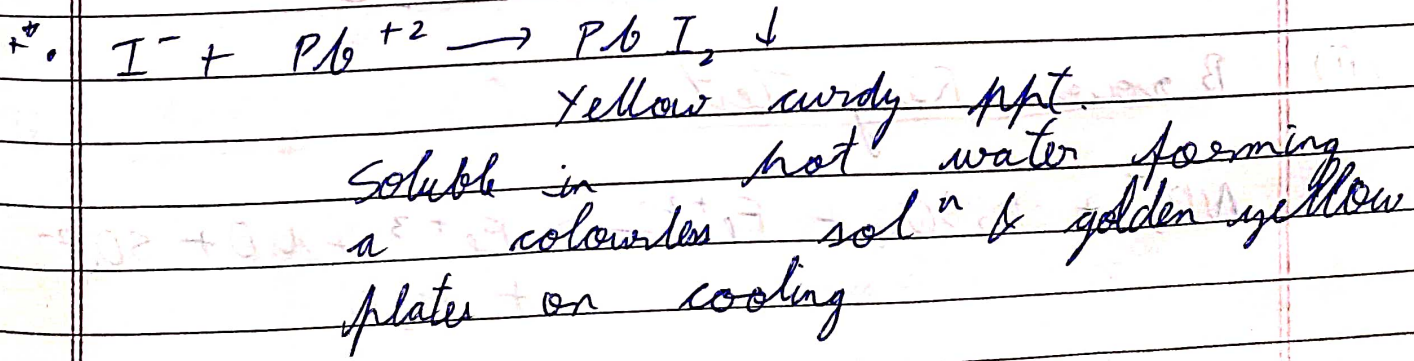 I⁻ + Pb⁺² → PbI₂ ↓
Yellow curdy ppt.
Soluble in hot water forming
a colourless solⁿ & golden yellow
plates on cooling